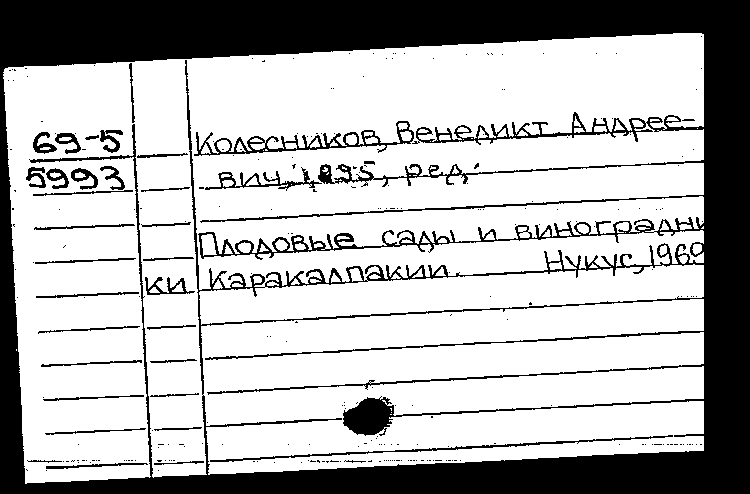 69-5
5993
Колесников, Венедикт Андрее-
вич, 1895, ред.
Плодовые сады и виноградни
ки Каракалпакии. Нукус, 1969